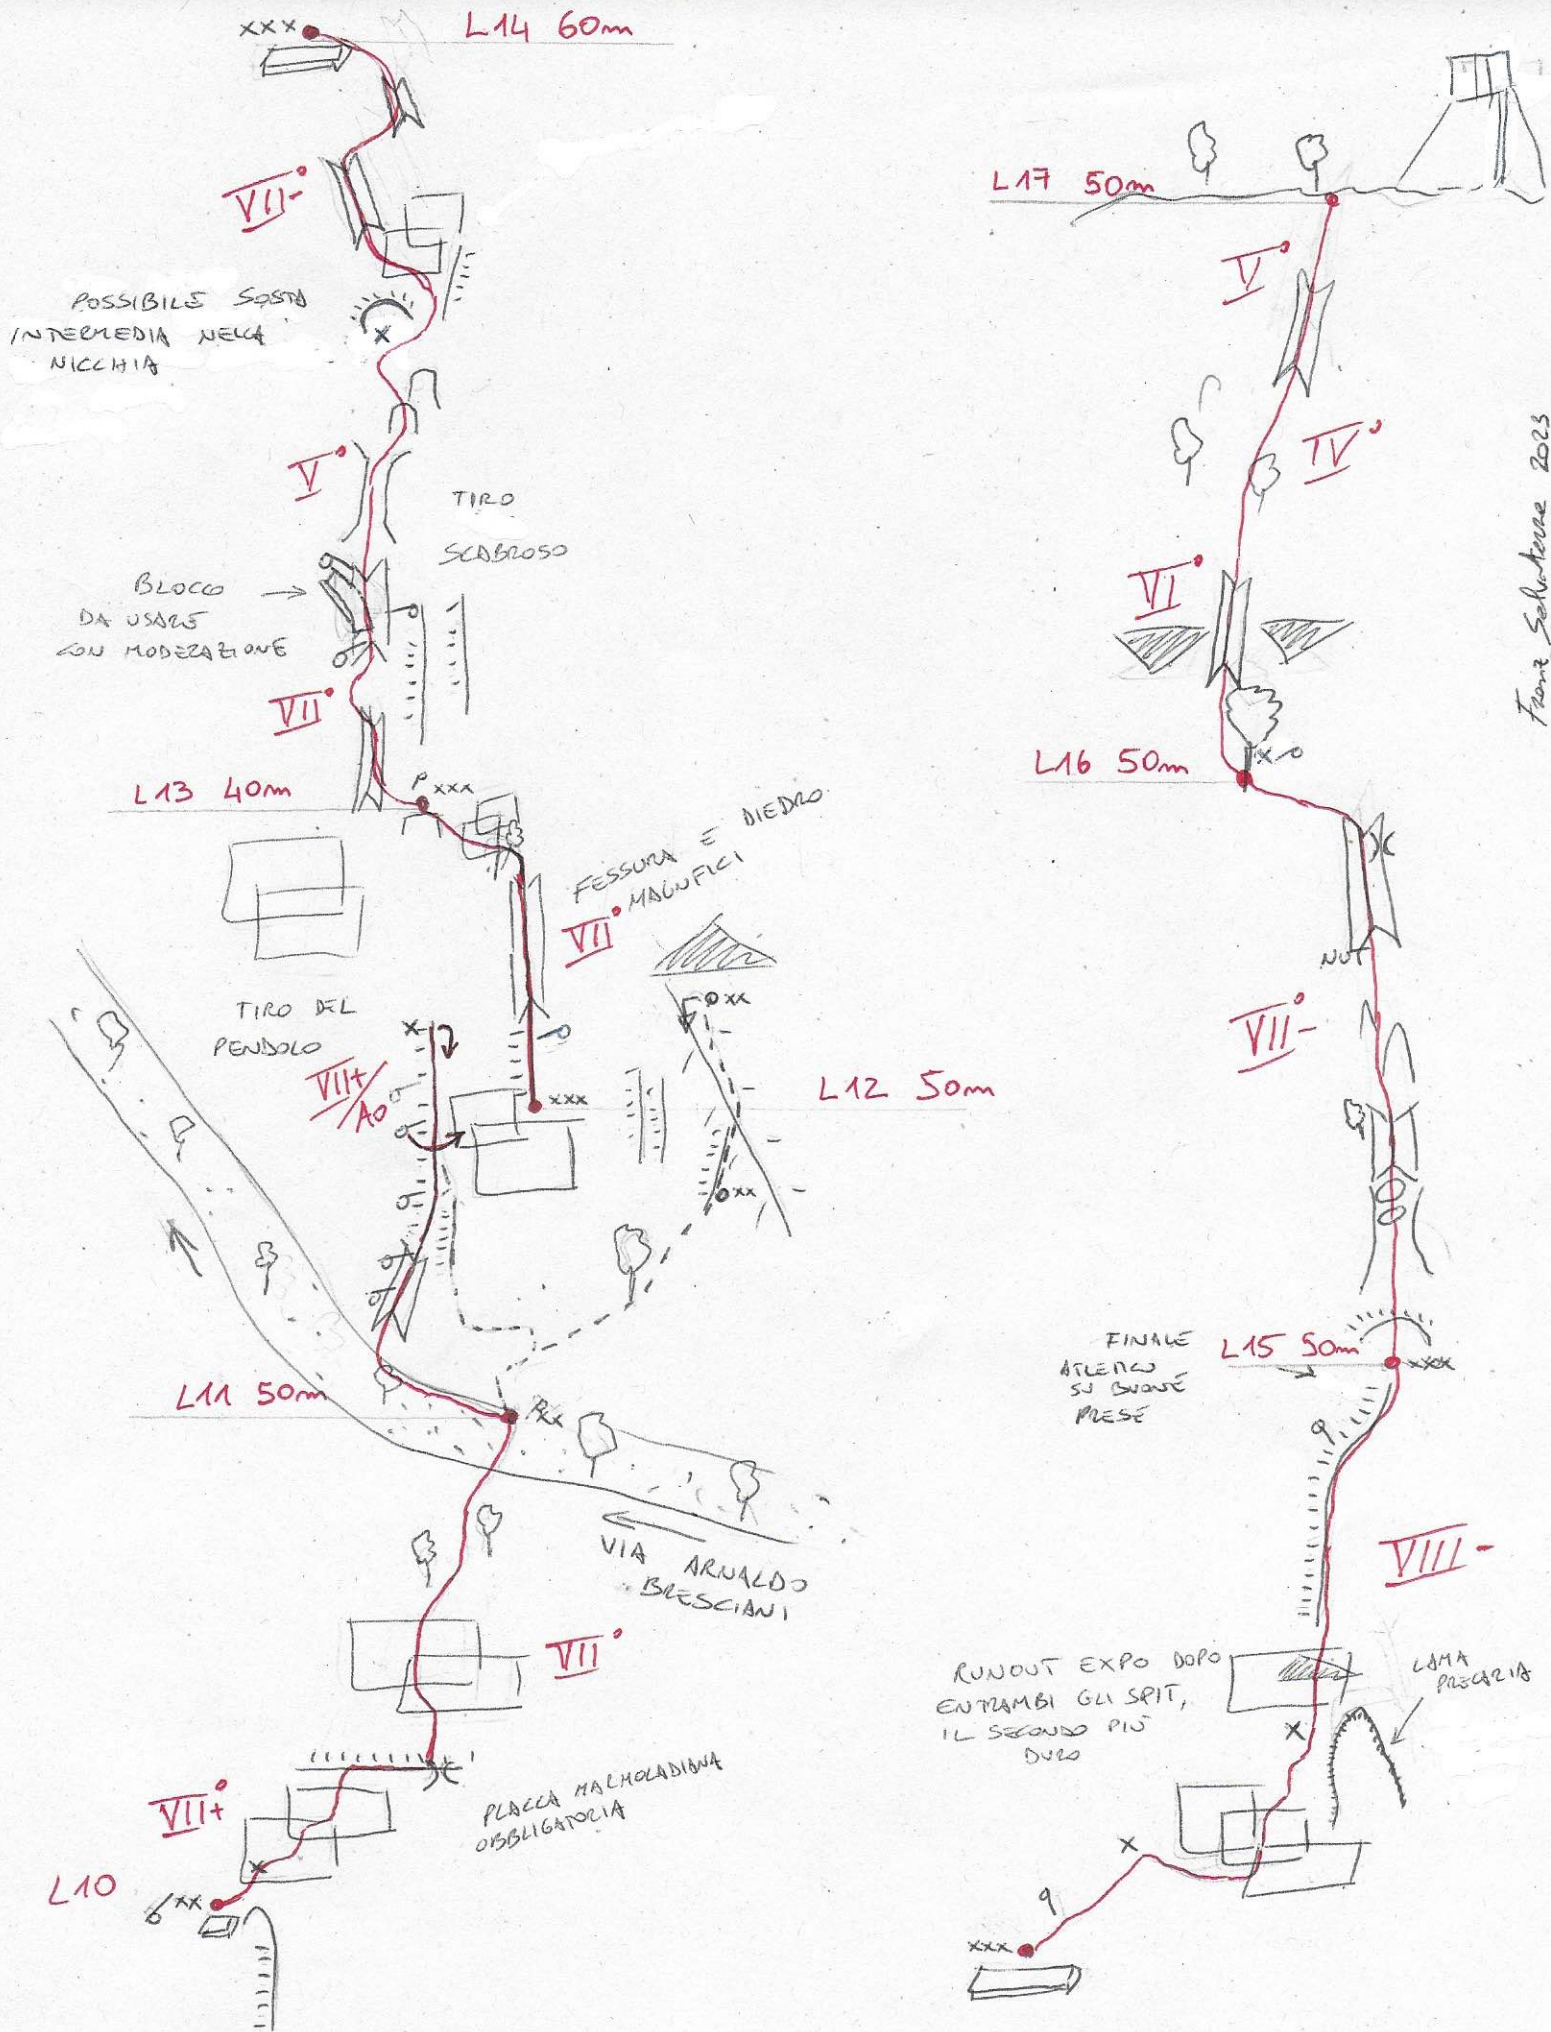 XXX
L14 60m
VII-°
POSSIBILE SOSTA
INTERMEDIA NELLA
NICCHIA
X
V°
TIRO
SCABROSO
BLOCCO
DA USARE
CON MODERAZIONE
VII°
L13 40m
XXX
FESSURA E DIEDRO
MAGNIFICI
VII°
TIRO DEL
PENDOLO
X
XX
VII+/A0
XXX
L12 50m
XX
L11 50m
XX
VIA ARNALDO
BRESCIANI
VII°
VII+°
PLACCA MARMOLADIANA
OBBLIGATORIA
X
L10
XX
L17 50m
V°
IV°
VI°
X
L16 50m
NUT
VII-°
FINALE
ATLETICO
SU BUONE
PRESE
L15 50m
XXX
VIII-
RUNOUT EXPO DOPO
ENTRAMBI GLI SPIT,
IL SECONDO PIÙ
DURO
LAMA
PRECARIA
X
X
XXX
Franz Salvaterra 2023